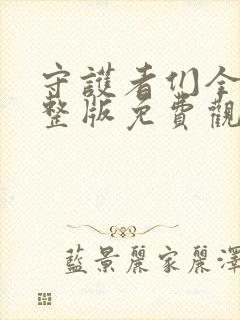 守護者们全
整版免費觀
藍景麗家麗澤